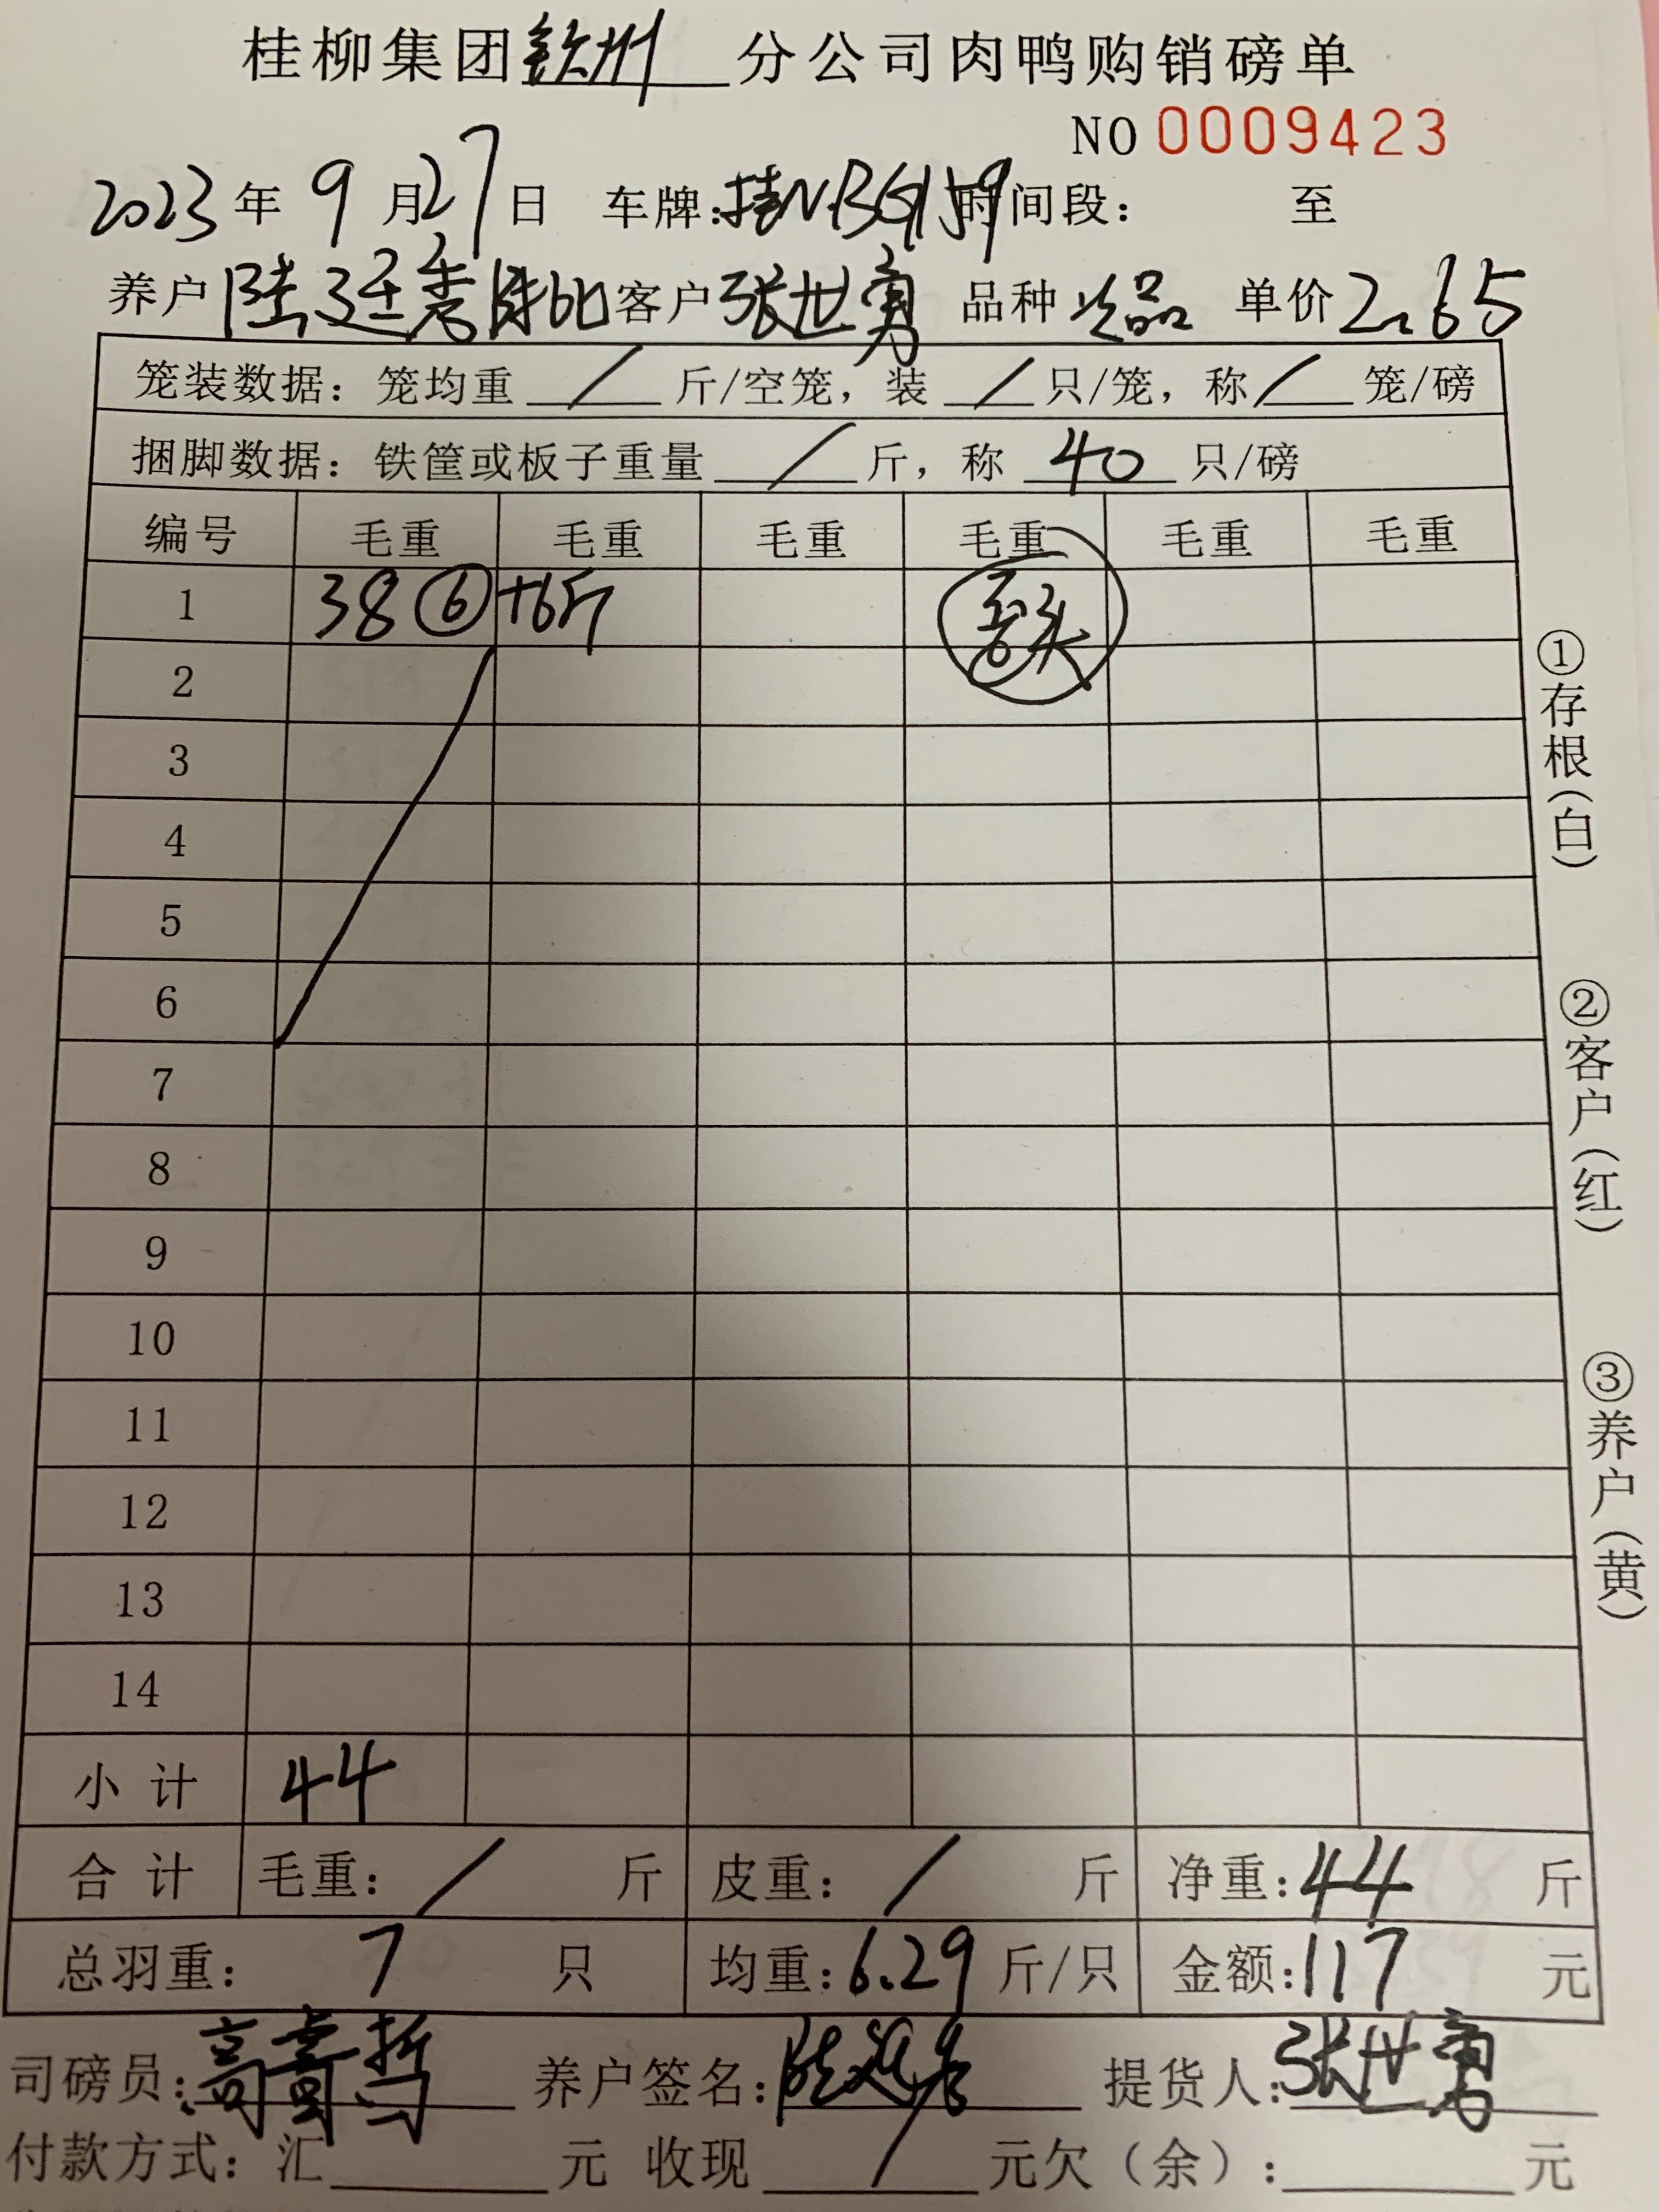 桂柳集团钦州分公司肉鸭购销磅单
NO 0009423
2023年9月27日 车牌:桂N·BG159 时间段: 至
养户 陆廷秀 客户 张世勇 品种 次品 单价 2.65
笼装数据: 笼均重 / 斤/空笼, 装 / 只/笼, 称 / 笼/磅
捆脚数据: 铁筐或板子重量 / 斤, 称 40 只/磅
编号 毛重 毛重 毛重 毛重 毛重 毛重
1 38 ⑥ +6斤
2
3
4
5
6
7
8
9
10
11
12
13
14
小计 44
合计 毛重: / 斤 皮重: / 斤 净重: 44 斤
总羽重: 7 只 均重: 6.29 斤/只 金额: 117 元
司磅员: 养户签名: 提货人: 张世勇
付款方式: 汇 元 收现 / 元欠(余): 元
①存根(白)
②客户(红)
③养户(黄)